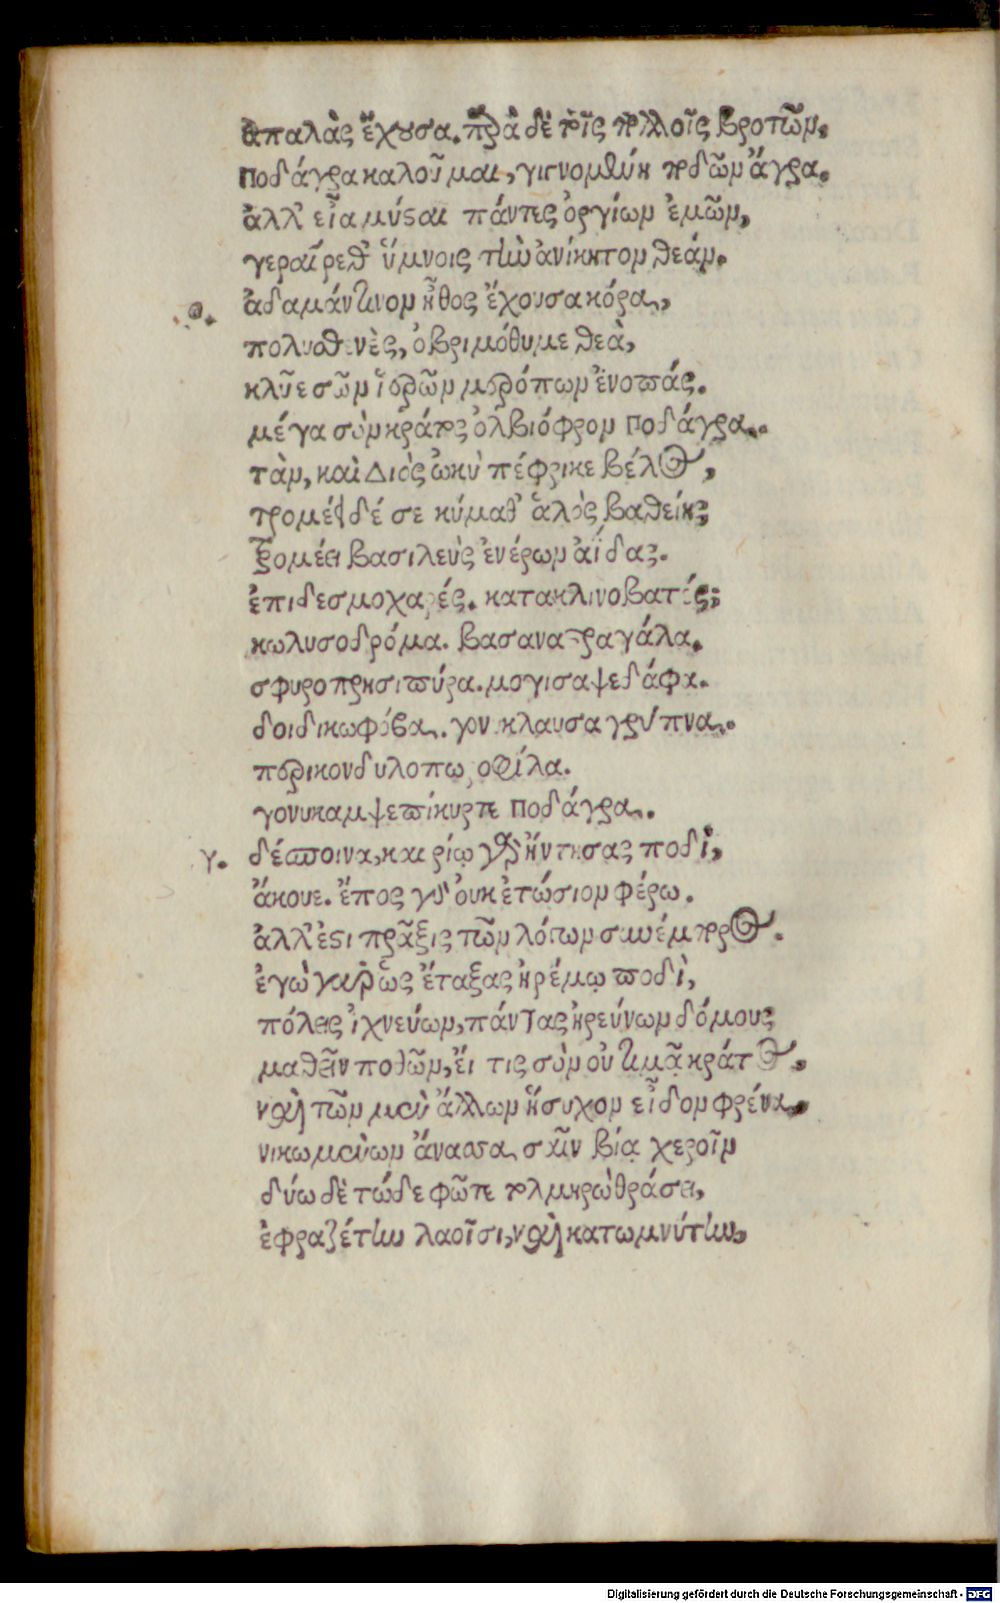 ἁπαλὰς ἔχουσα. παρὰ δὲ τοῖς πολλοῖς βροτῶν,
ποδάγρα καλοῦμαι, γιγνομένη ποδῶν ἄγρα.
ἀλλ' εἶα μύσται πάντες ὀργίων ἐμῶν,
γεραίρεθ' ὕμνοις τὴν ἀνίκητον θεάν.
ἀδαμάντινον ἦθος ἔχουσα κόρα,
πολυσθενὲς, ὀβριμόθυμε θεὰ,
κλῦε σῶν ἱερῶν μερόπων ἐνοπάς.
μέγα σὸν κράτος ὀλβιόφρον ποδάγρα.
τὰν, καὶ Διὸς ὠκὺ πέφρικε βέλος,
τρομέει δέ σε κύμαθ' ἁλὸς βαθείης,
τρομέει βασιλεὺς ἐνέρων ἀΐδας.
ἐπιδεσμοχαρές. κατακλινοβατές;
κωλυσοδρόμα. βασαναστραγάλα.
σφυροπρησιπύρα. μογισαψεδάφα.
δοιδικωφόβα. γονυκλαυσαγρύπνα.
περικονδυλοπωροφίλα.
γονυκαμψεπίκυρτε ποδάγρα.
γ. δέσποινα, καιρίῳ γὰρ ἤντησας ποδὶ,
ἄκουε. ἔπος γὰρ οὐκ ἐτώσιον φέρω.
ἀλλ' ἔστι πρᾶξις τῶν λόγων συνέμπορος.
ἐγὼ γὰρ ὡς ἔταξας ἠρέμῳ ποδὶ,
πόλεις ἰχνεύων, πάντας ἠρεύνων δόμους
μαθεῖν ποθῶν, εἴ τις σὸν οὐ τιμᾷ κράτος,
καὶ τῶν μὲν ἄλλων ἥσυχον εἶδον φρένα,
νικωμένων ἄνασσα, σαῖν βίᾳ χεροῖν
δύω δὲ τώδε φῶτε τολμηρῷ θράσει,
ἐφραζέτην λαοῖσι, καὶ κατωμνύτην,